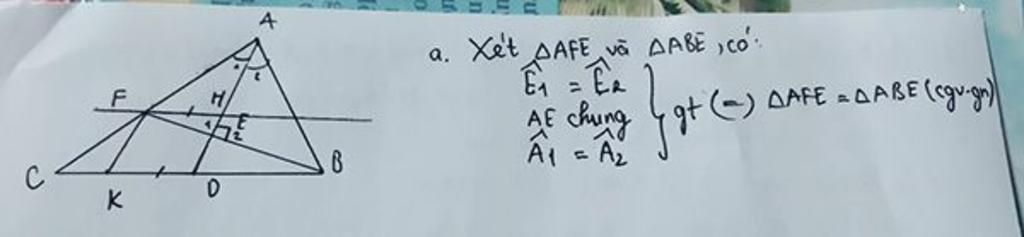 A
1 2
F
H
1
E
2
C
K
D
B
a. Xét ΔAFE và ΔABE, có:
Ê1 = Ê2
AE chung
Â1 = Â2
} gt (=) ΔAFE = ΔABE (cgv-gn)